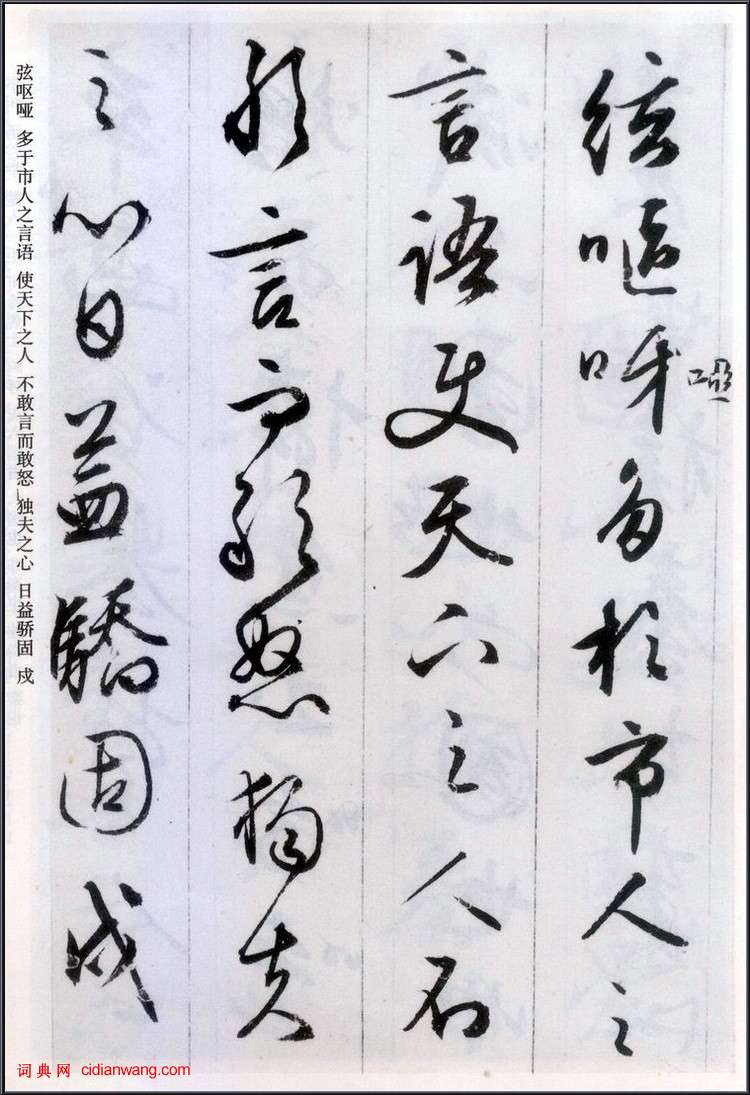 絃嘔呀多於市人之
啞
言語使天下之人不
敢言而敢怒獨夫
之心日益驕固戍
弦呕哑 多于市人之言语 使天下之人 不敢言而敢怒 独夫之心 日益骄固 戍
词典网 cidianwang.com